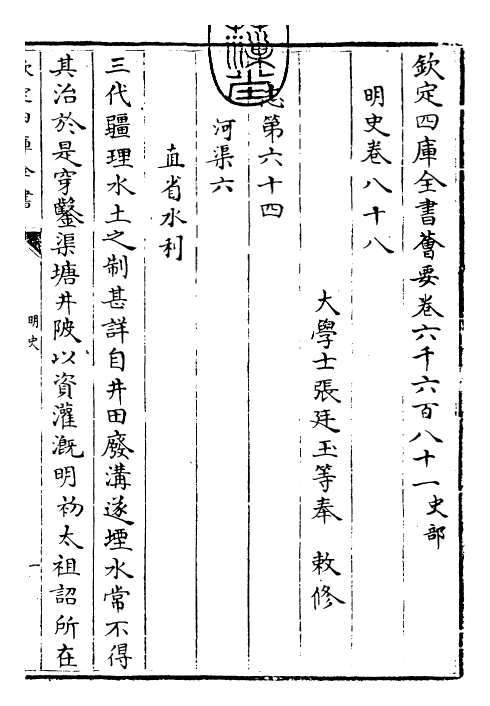 欽定四庫全書薈要卷六千六百八十一史部
明史卷八十八
大學士張廷玉等奉 敕修
志第六十四
河渠六
直省水利
三代疆理水土之制甚詳自井田廢溝遂堙水常不得
其治於是穿鑿渠塘井陂以資灌溉明初太祖詔所在
欽定四庫全書
明史
一